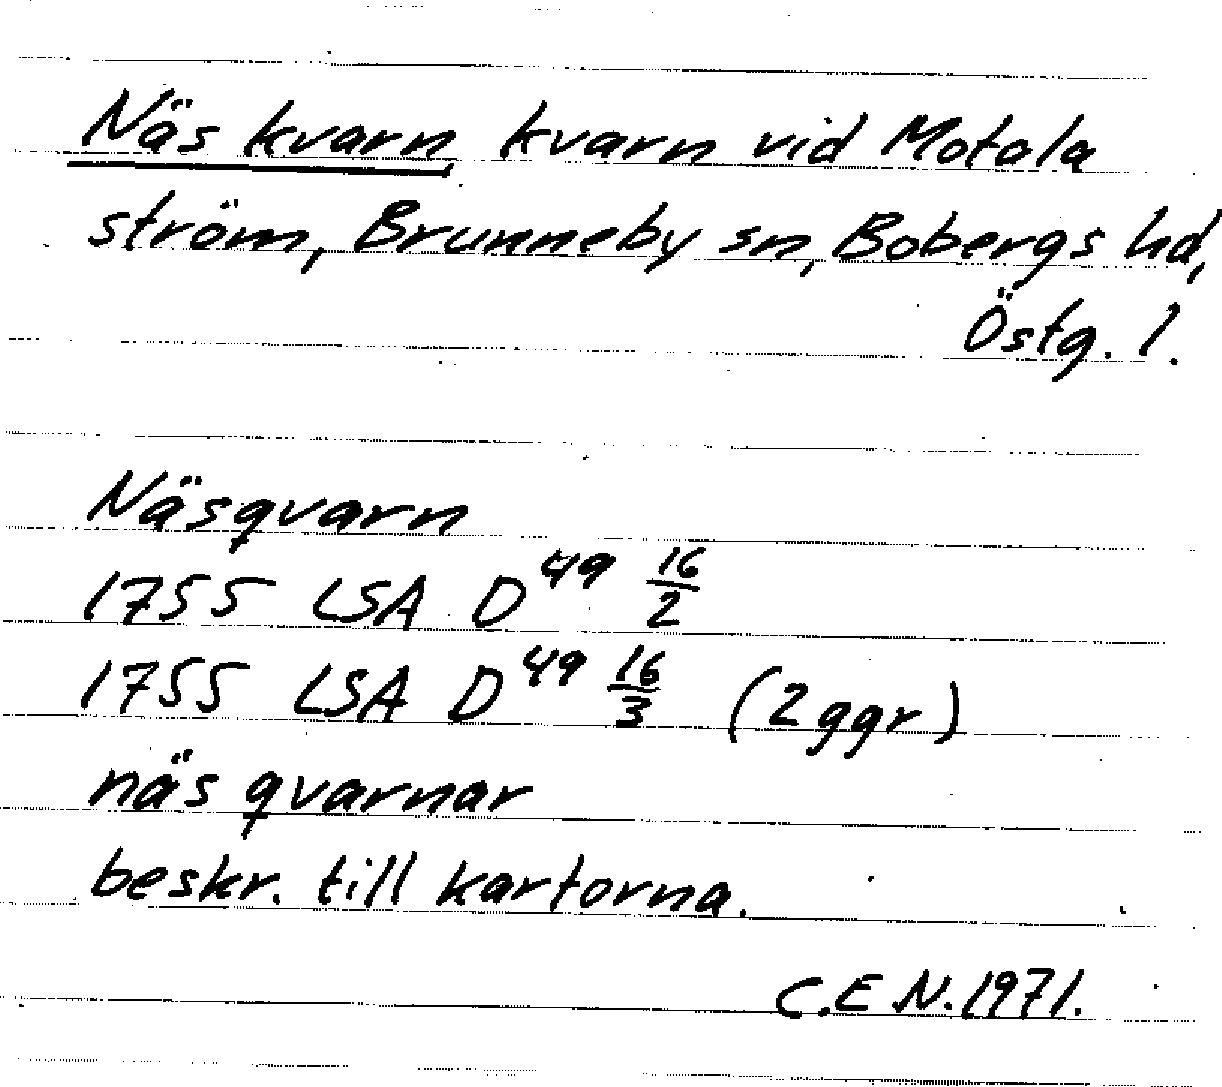 Näs kvarn, kvarn vid Motala
ström, Brunneby sn, Bobergs hd,
Östg. l.
Näsqvarn
1755 LSA D⁴⁹ 16/2
1755 LSA D⁴⁹ 16/3 (2 ggr)
näs qvarnar
beskr. till kartorna.
C.E.N. 1971.